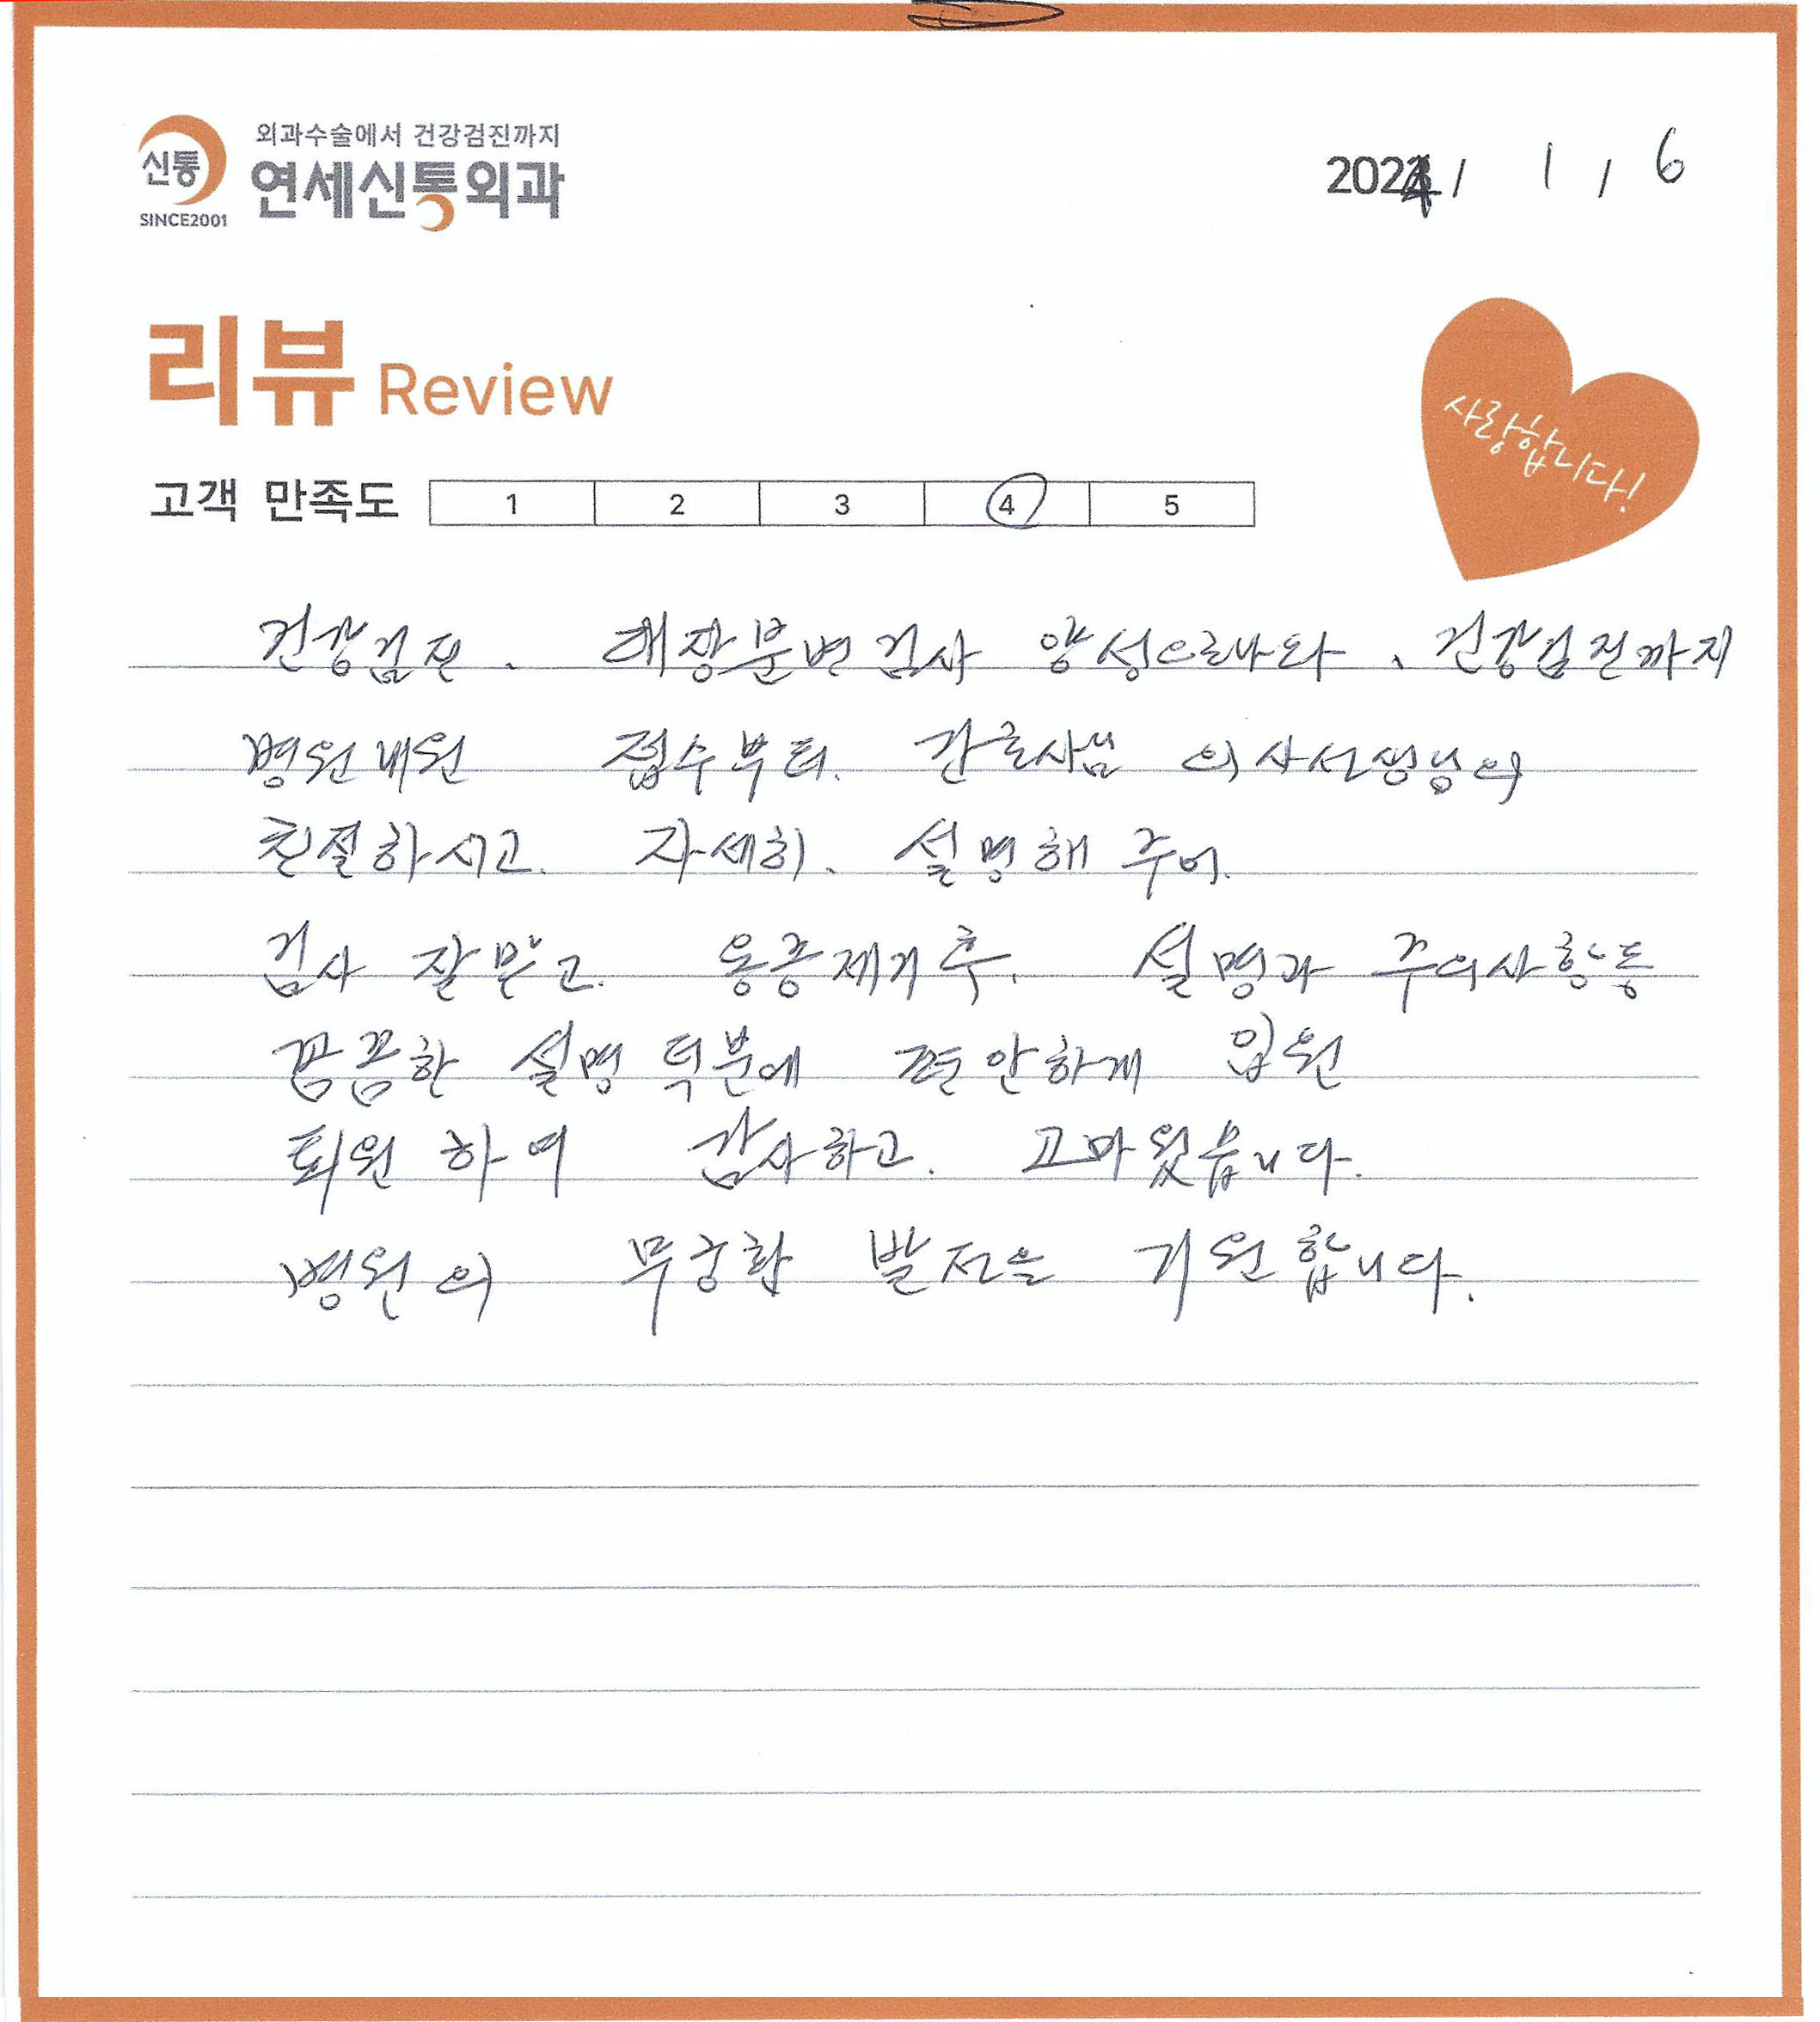 신통
SINCE2001
외과수술에서 건강검진까지
연세신통외과
2024 / 1 / 6
리뷰 Review
사랑합니다!
고객 만족도 1 2 3 4 5
건강검진. 대장분변검사 양성으로나와, 건강검진까지
병원내원 접수부터. 간호사님 의사선생님의
친절하시고. 자세히. 설명해 주어.
검사 잘 받고. 용종제거후. 설명과 주의사항등
꼼꼼한 설명 덕분에 편안하게 입원
퇴원 하여 감사하고. 고마웠읍니다.
병원의 무궁한 발전을 기원합니다.